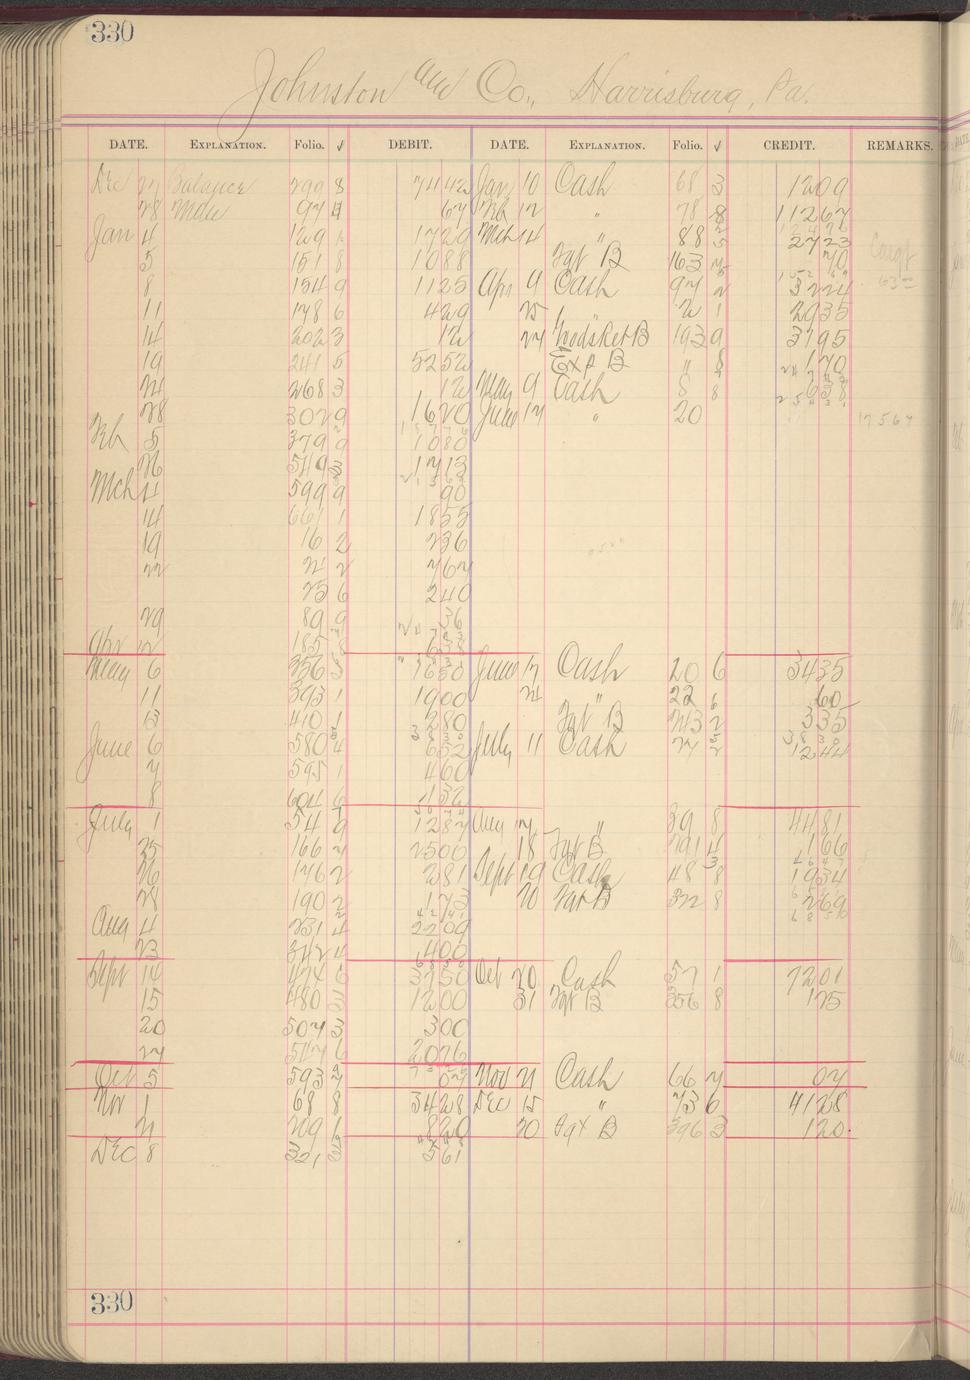 330
Johnston and Co., Harrisburg, Pa.
DATE. EXPLANATION. Folio. √ DEBIT. DATE. EXPLANATION. Folio. √ CREDIT. REMARKS.
Dec 27 Balance 299 8 7442 Jan 10 Cash 68 3 1209
28 Mdse 97 67 Feb 12 " 78 8 11267
Jan 4 129 1 1729 Mch 14 " 88 2723
5 151 8 1088 Fgt B 163 70
8 154 9 1125 Apr 9 Cash 97 2 3224
11 178 6 429 25 " 2 1 2935
14 202 3 12 27 193 9 3195
19 241 5 5252 Exp B " 8 170
24 268 3 12 May 9 Cash 8 8 938
28 302 9 1620 June 17 " 20 17567
Feb 5 379 9 1080
26 549 3 1713
Mch 4 599 9 90
14 661 1 1855
19 16 2 236
22 21 2 767
25 6 240
29 89 9 36
Apr 2 185 8 638
May 6 356 5 1650 June 17 Cash 20 6 3435
11 393 1 1900 24 " 22 6 60
13 410 1 280 Fgt B 243 2 335
June 6 580 4 652 July 11 Cash 27 2 1244
7 595 1 460
8 604 6 132
July 1 54 9 1287 Aug 17 " 39 8 4481
25 166 7 2500 18 Fgt B 291 4 166
26 176 2 281 Sept 19 Cash 48 8 1934
28 190 2 173 20 Fgt B 322 8 269
Aug 4 231 4 2209
23 342 4 400
Sept 14 474 6 3750 Oct 20 Cash 57 1 7201
15 480 3 1200 31 Fgt B 356 8 125
20 507 3 300
27 547 6 2076
Oct 5 593 7 07 Nov 21 Cash 66 7 07
Nov 1 68 8 3428 Dec 15 " 73 6 4128
21 209 1 820 20 Fgt B 396 3 120
Dec 8 321 561
330